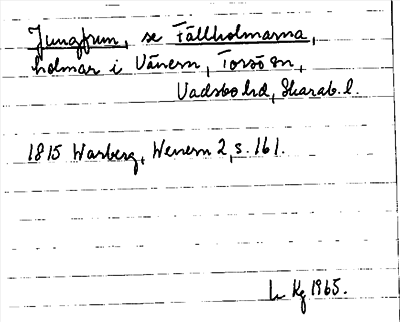 Jungfrun, se Fällholmarna,
holmar i Vänern, Torsö sn,
Vadsbo hd, Skarab. l.
1815 Warberg, Wenern 2, s. 161.
Kg 1965.